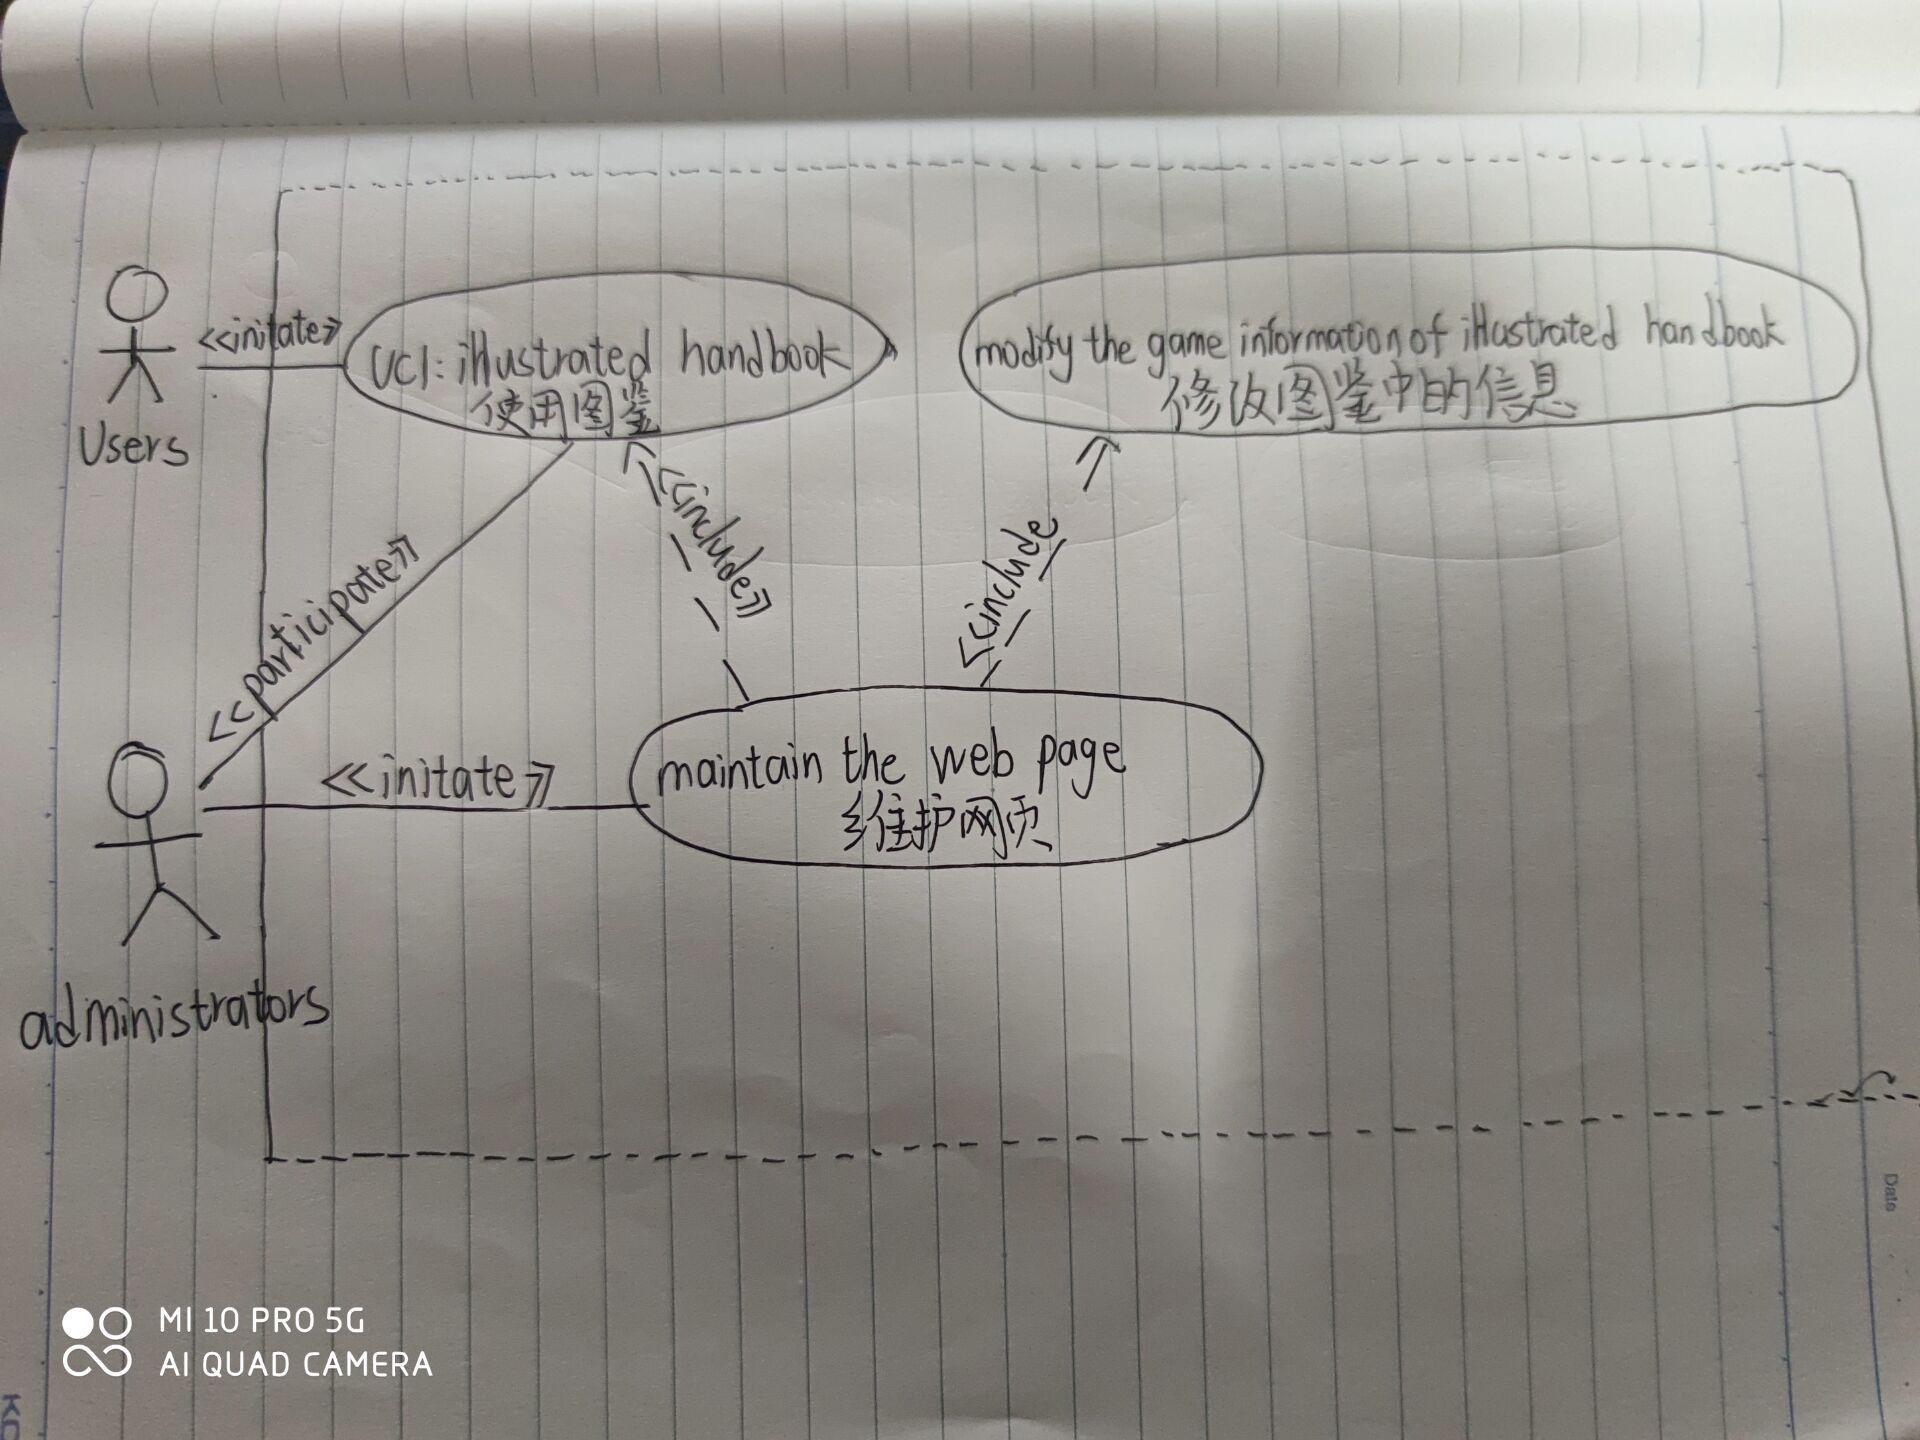 <<initate>>
UC1: illustrated handbook
使用图鉴
modify the game information of illustrated handbook
修改图鉴中的信息
Users
<<include>>
<<include
<<participate>>
<<initate>>
maintain the web page
维护网页
administrators
Date
MI 10 PRO 5G
AI QUAD CAMERA